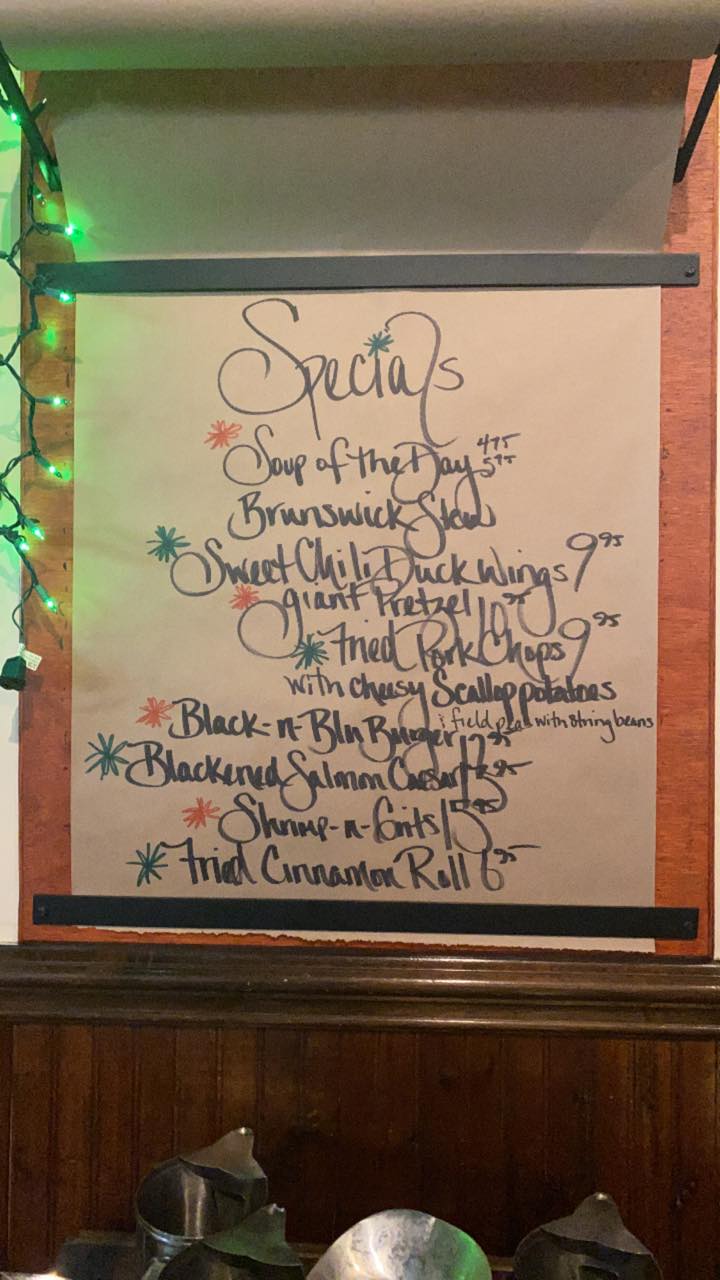 Specials
Soup of the Day 4.95 5.95
Brunswick Stew
Sweet Chili Duck Wings 9.95
giant Pretzel 10.95
Fried Pork Chops 9.95
with cheesy Scallop potatoes
& field peas with string beans
Black-n-Blu Burger 12.95
Blackened Salmon Caesar 13.95
Shrimp-n-Grits 15.95
Fried Cinnamon Roll 6.95